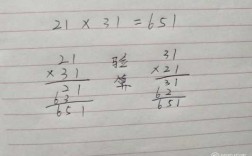 21 × 31 = 651
21
× 31
21
63
651
验
算
31
× 21
31
62
651